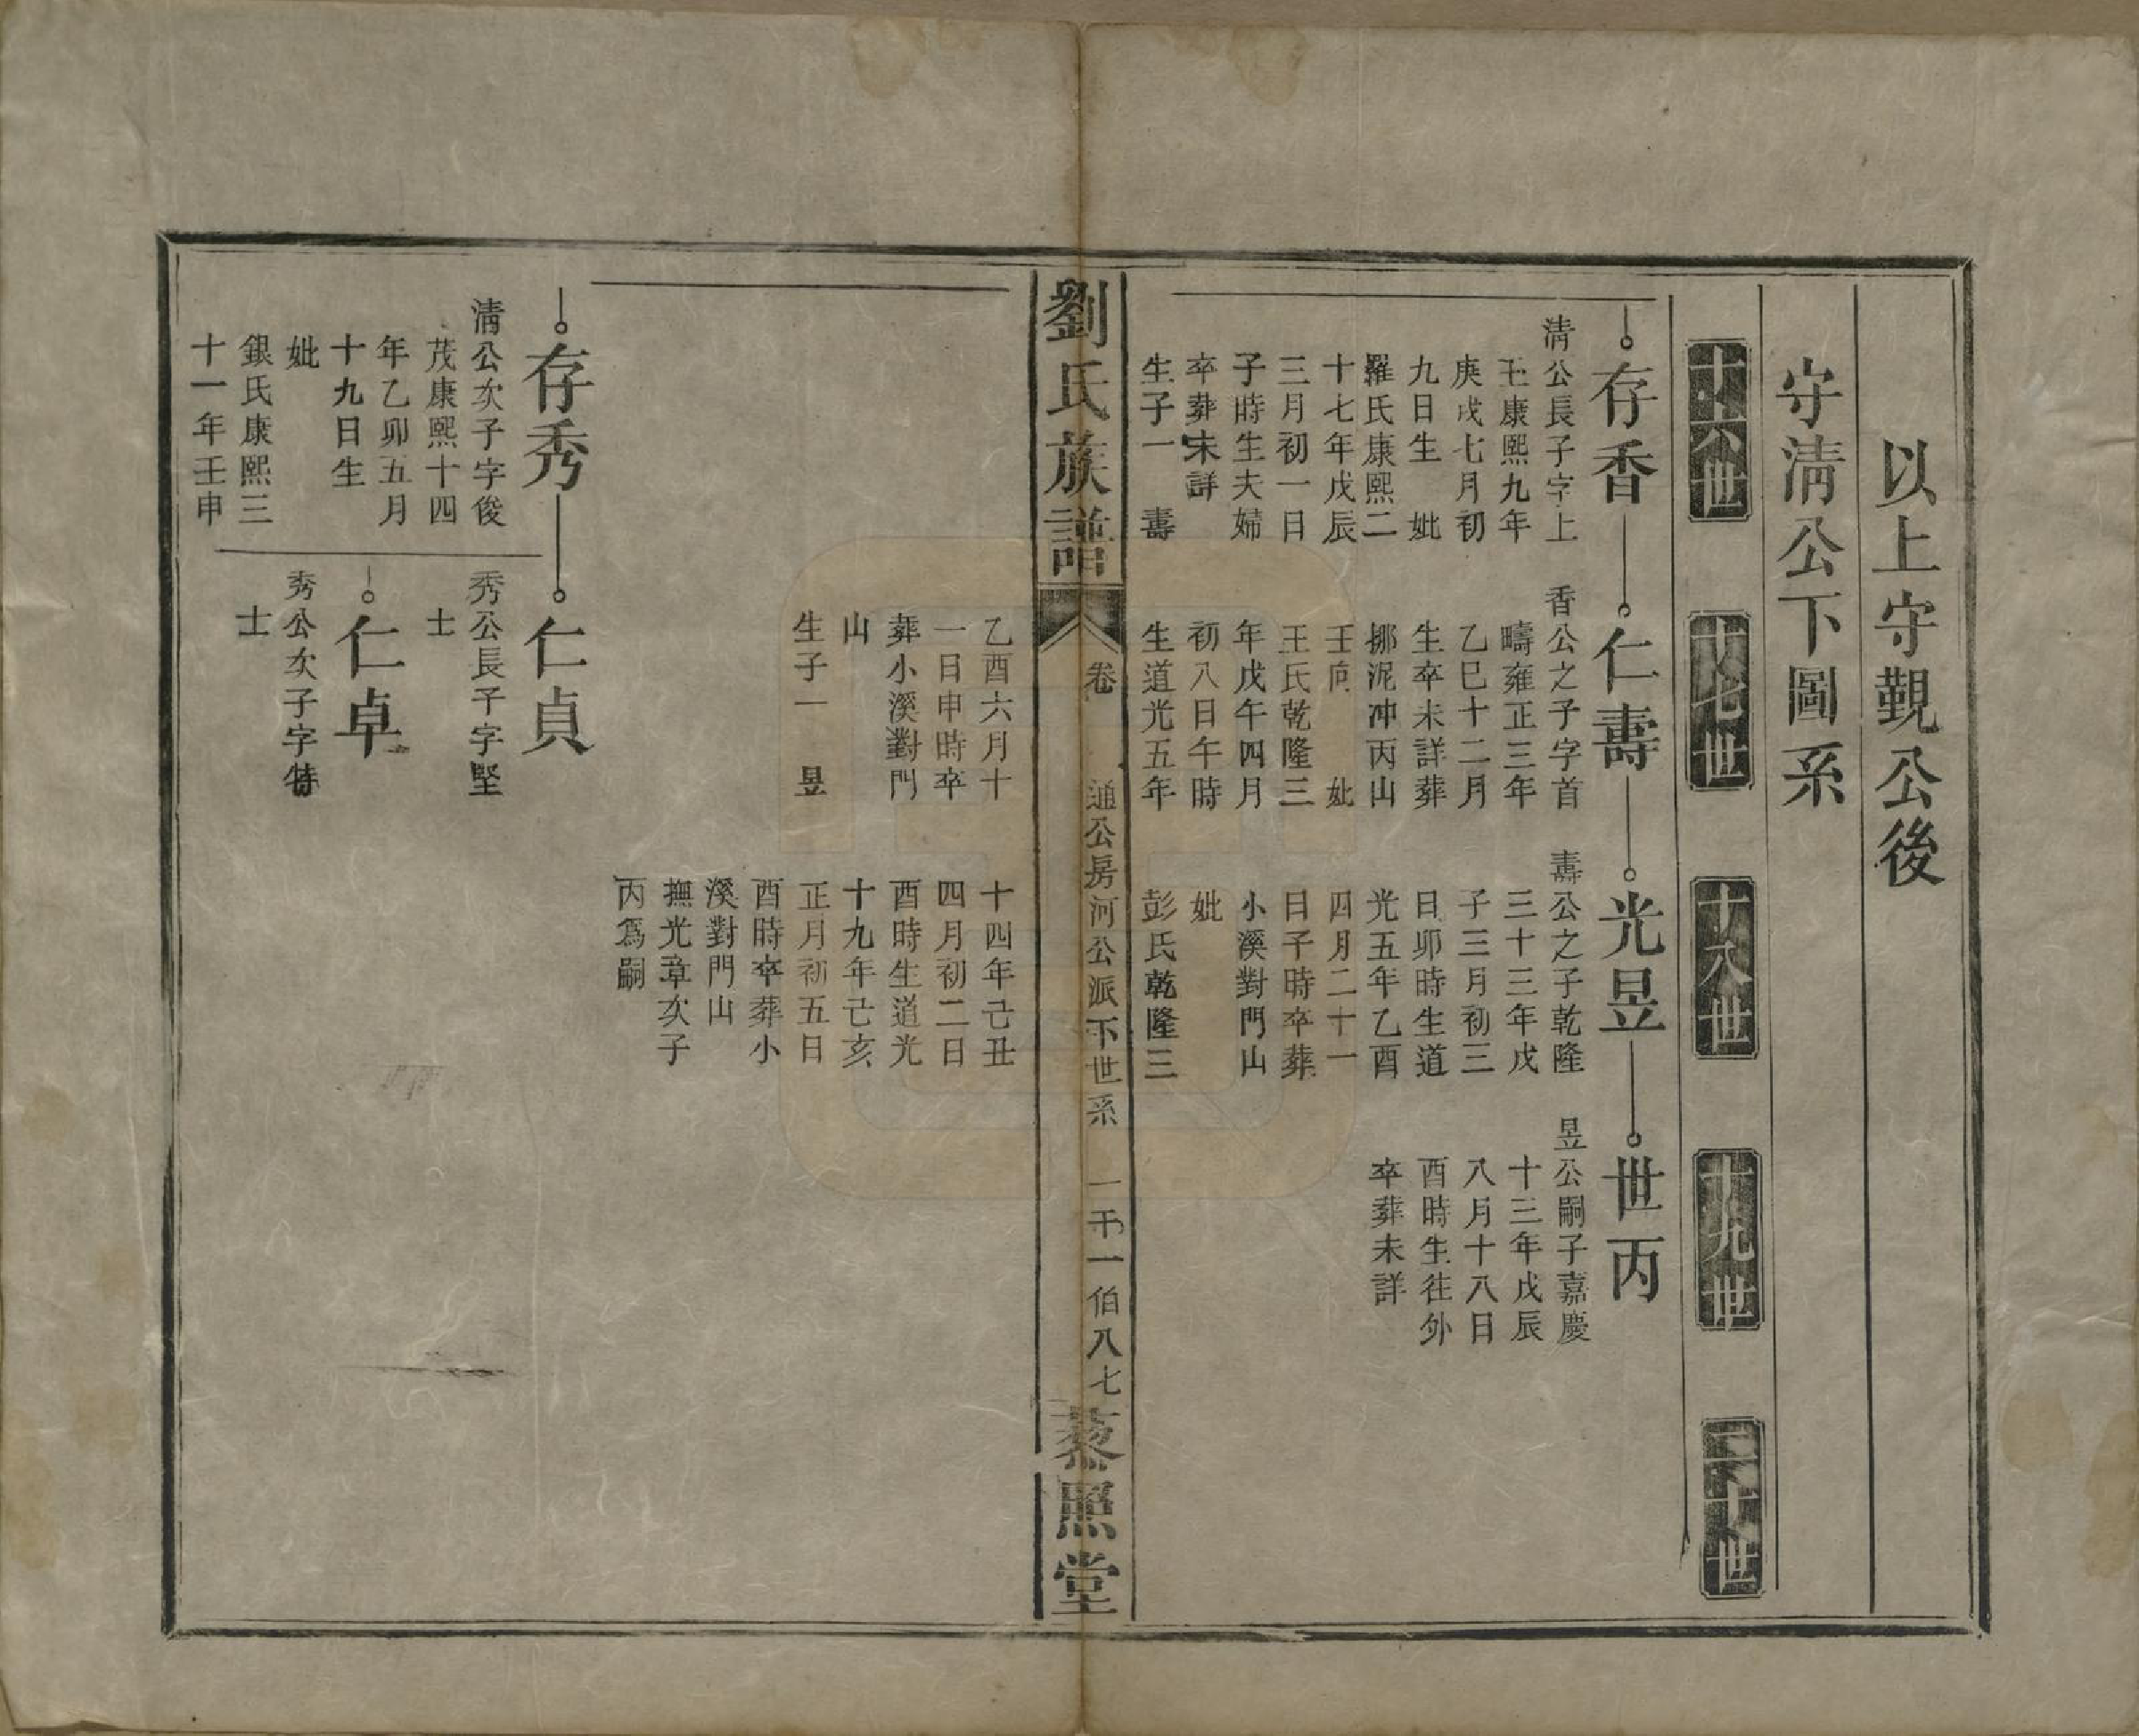 以上守觀公後
守清公下圖系
十六世
十七世
十八世
十九世
二十世
存香
清公長子字上
玉康熙九年
庚戌七月初
九日生　妣
羅氏康熙二
十七年戊辰
三月初一日
子時生夫婦
卒葬未詳
生子一　壽
仁壽
香公之子字首
疇雍正三年
乙巳十二月
生卒未詳葬
挪泥冲丙山
壬向　　妣
王氏乾隆三
年戊午四月
初八日午時
生道光五年
乙酉六月十
一日申時卒
葬小溪對門
山
生子一　昱
光昱
壽公之子乾隆
三十三年戊
子三月初三
日卯時生道
光五年乙酉
四月二十一
日子時卒葬
小溪對門山
妣
彭氏乾隆三
十四年己丑
四月初二日
酉時生道光
十九年己亥
正月初五日
酉時卒葬小
溪對門山
撫光章次子
丙爲嗣
世丙
昱公嗣子嘉慶
十三年戊辰
八月十八日
酉時生往外
卒葬未詳
劉氏族譜
卷
通公房河公派下世系
一千一伯八七
藜照堂
存秀
清公次子字俊
茂康熙十四
年乙卯五月
十九日生
妣
銀氏康熙三
十一年壬申
仁貞
秀公長子字堅
士
仁卓
秀公次子字特
士